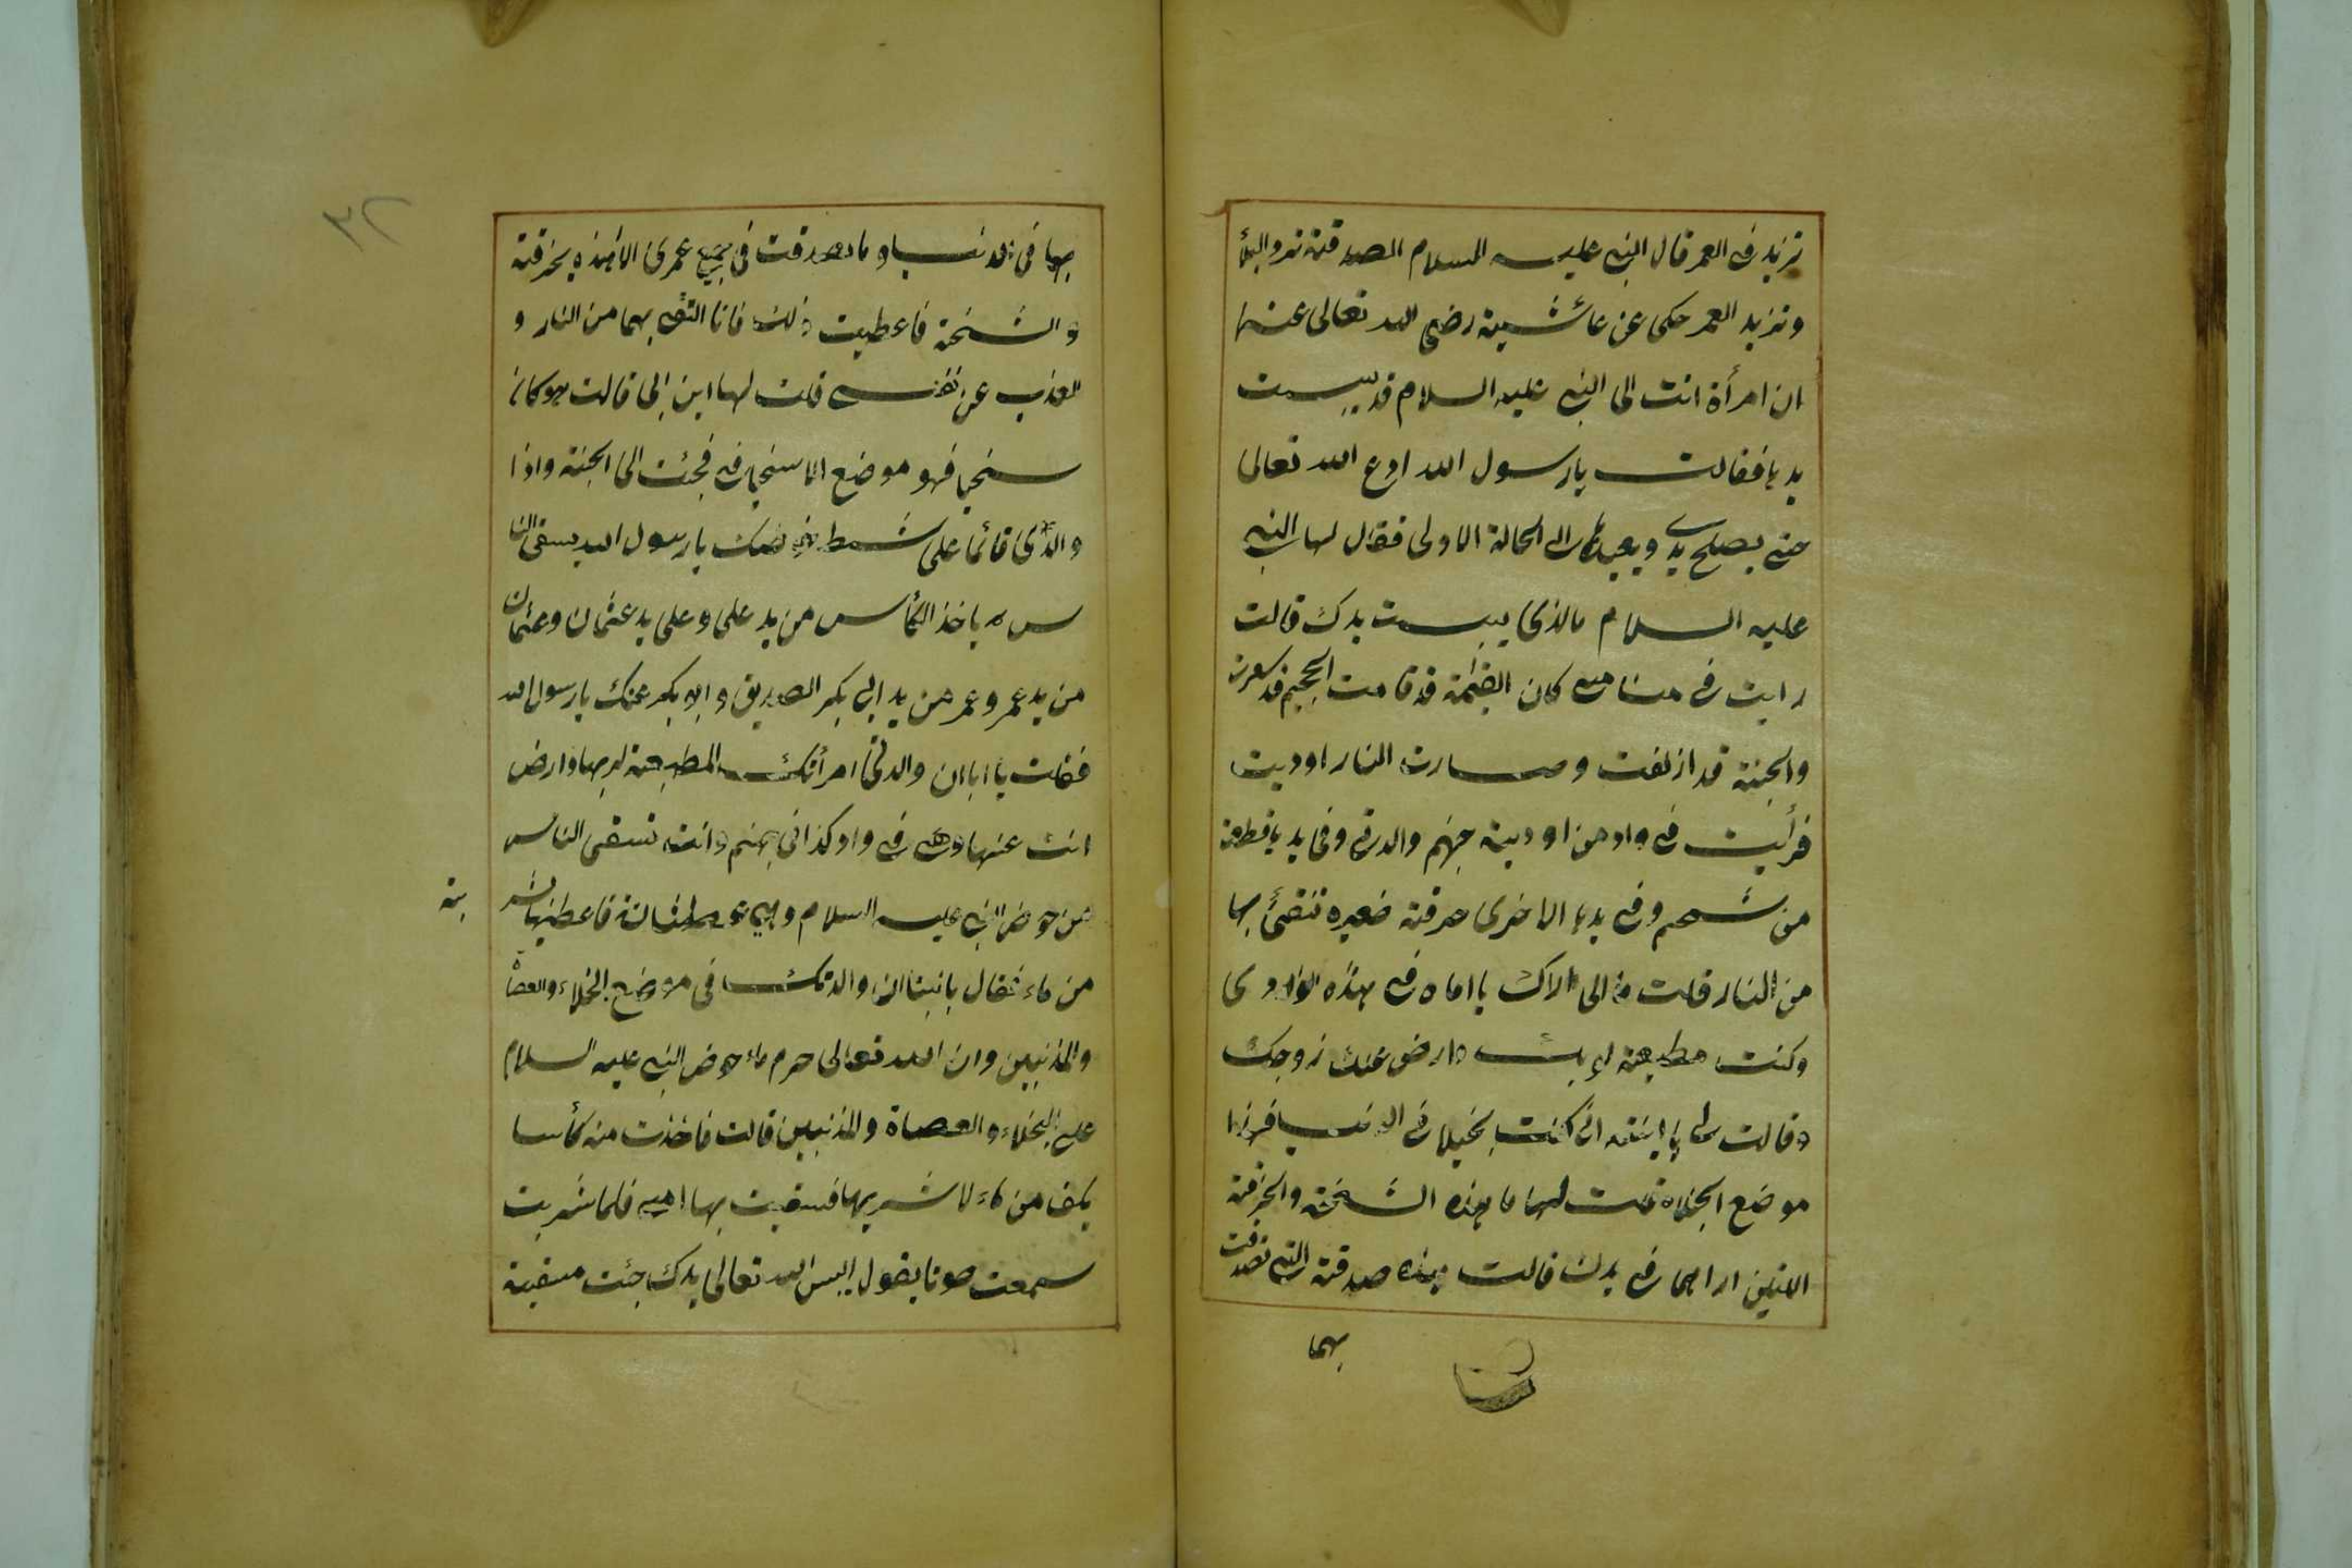 تزيد في العمر قال النبي عليه السلام الصدقة ترد البلأ
وتزيد العمر حكى عن عائشية رضي الله تعالى عنها
ان امرأة اتت الى النبي عليه السلام قد يبست
يدها فقالت يا رسول الله ادع الله تعالى
حتى يصلح يدي ويعيدها الى الحالة الاولى فقال لها النبي
عليه السلام مالذي يبست يدك قالت
رايت في منامي كان القيمة قد قامت الجحيم قد سعرت
والجنة قد ازلفت وصارت النار اوديت
فرأيت في واد من اودية جهنم والدتي وفي يدها قطعة
من شحم وفي يدها الاخرى خرقة صغيره تتقئ بها
من النار قلت مالى اراك يا اماه في هذه الوادى
وكنت مطيعة لربك وارض عنك زوجك
وقالت لى يا ابنته انى كنت بخيلا فى الدنيا فهذا
موضع البخلاء قلت لها ما هذه الشحمة والخرقة
اللتين اراهما في يدك قالت هذه صدقة التى تصدقت
بهما
٣٢
بها فى الدنيا وما تصدقت فى جميع عمرى الا بهذه بخرقة
والشحمة فاعطيت ذلك فانا اتقى بهما من النار و
العذب عن نفسى قلت لها اين ابى قالت هو كان
سخيا فهو موضع الاسخياء فى فجئت الى الجنة واذا
والدى قائما على شط حوضك يا رسول الله يسقى النا
س ه ياخذ الكأس من يد على وعلى يد عثمان وعثمان
من يد عمر وعمر من يد ابى بكر الصديق وابو بكر عنك يا رسول الله
فقلت يا ابا ان والدتى امرأتك المطيعة لربها وارض
انت عنها وهى فى واد كذا فى جهنم وانت تسقى الناس
من حوض النبى عليه السلام وهى عطشانة فاعطيها شر
بة
من ماء فقال يا بنيتا ان والدتك فى موضع البخلاء والعصا
والمذنبين وان الله تعالى حرم ماء حوض النبى عليه السلام
على البخلاء والعصاة والمذنبين قالت فاخذت منه كأسا
بكف من ماء لا شربها فسقيت بها امى فلما شربت
سمعت صوتا يقول ايبس الله تعالى يدك جئت مسقية